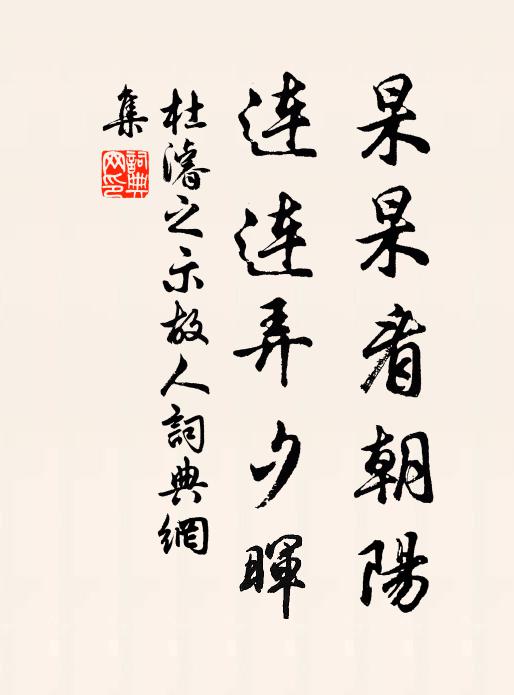 杲杲者朝陽
連連弄夕暉
杜濬之示故人詞典網
集
詞典網印